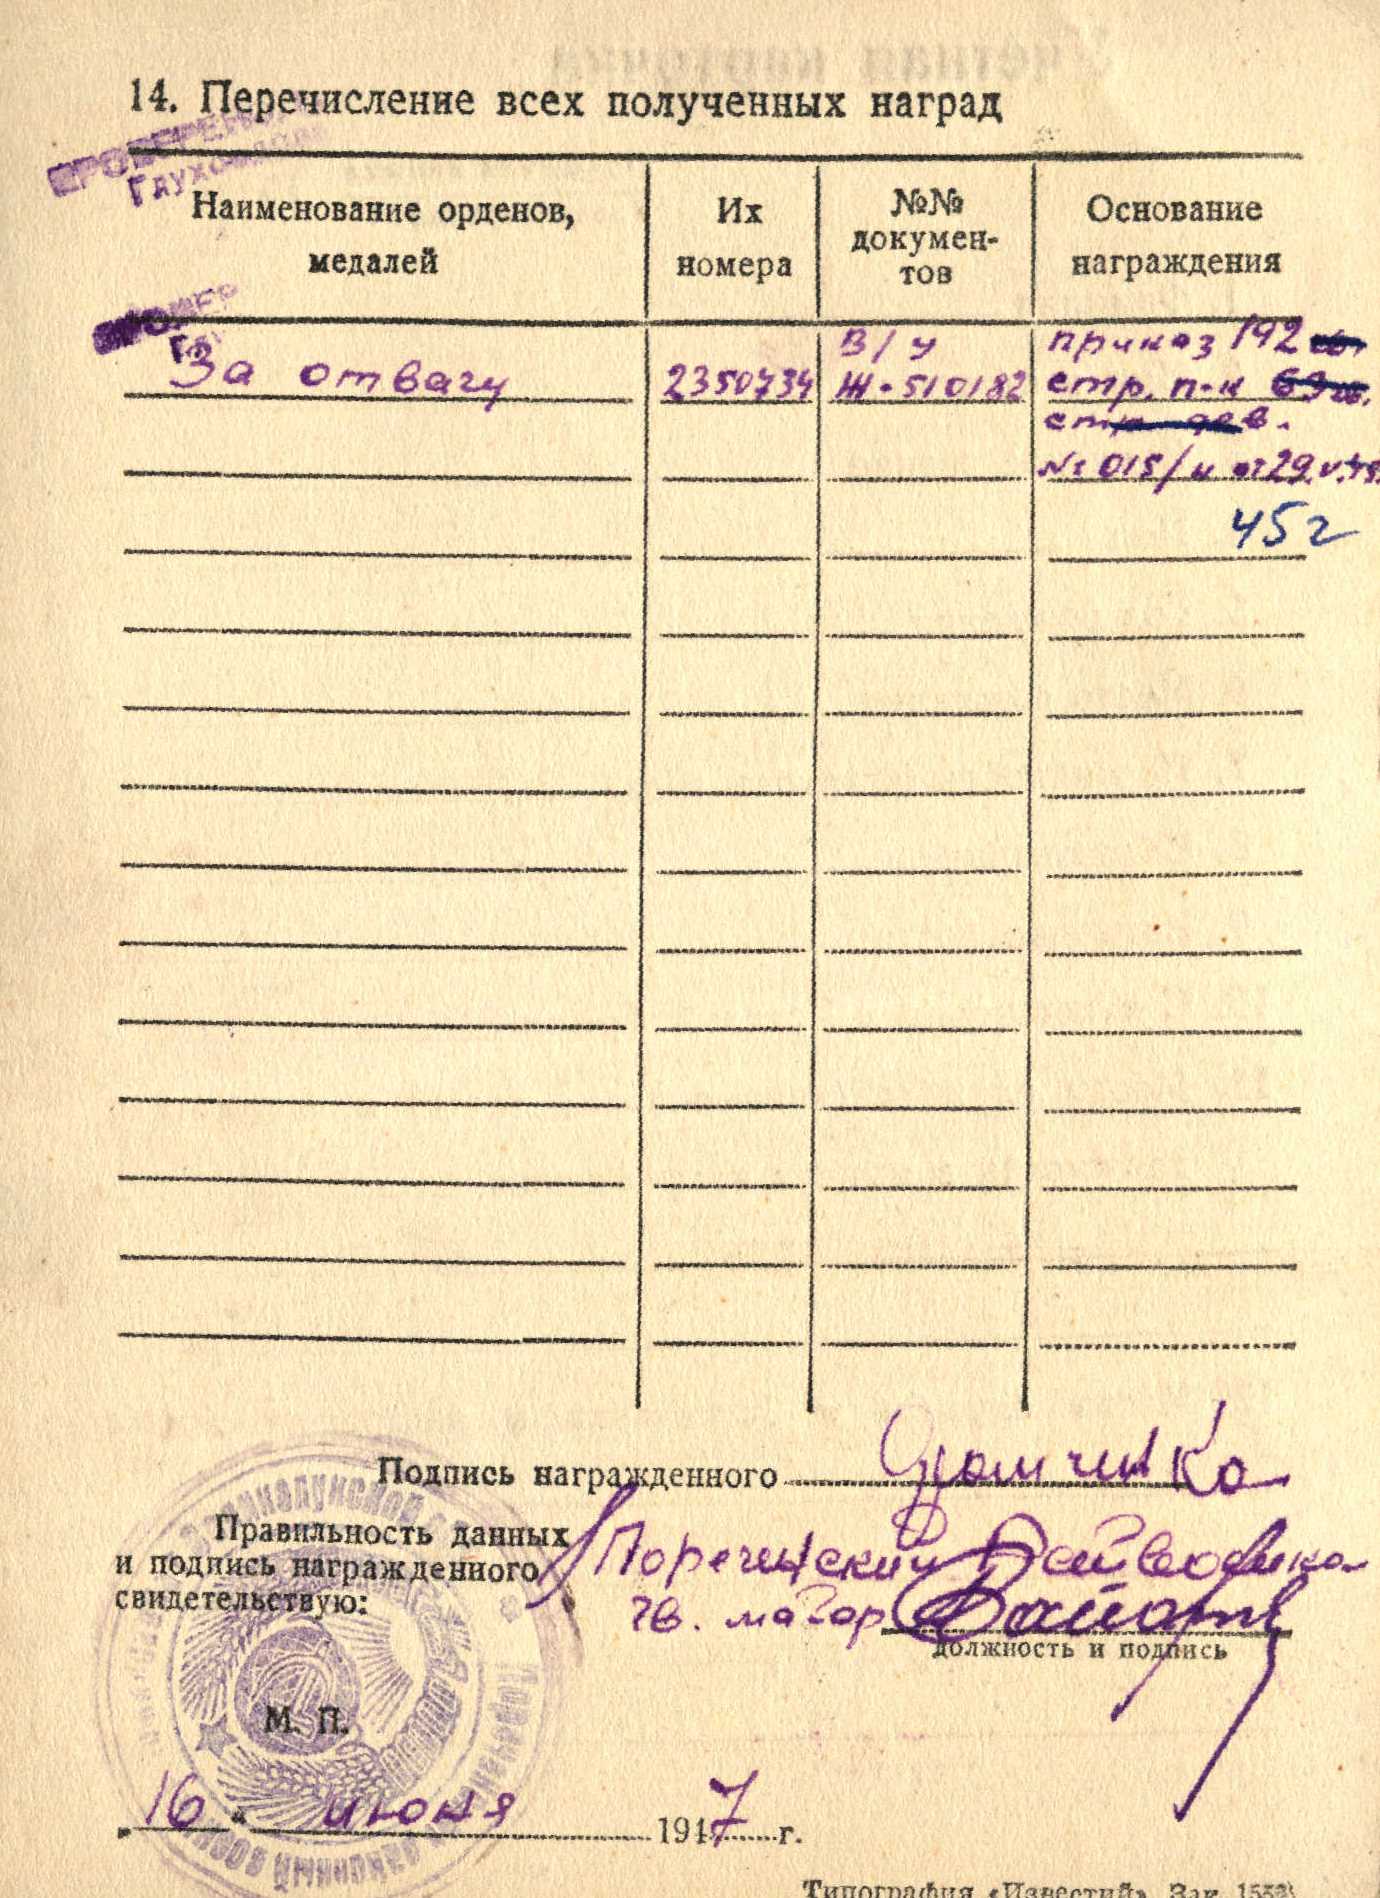 14. Перечисление всех полученных наград
Наименование орденов, медалей
Их номера
№№ докумен-
тов
Основание награждения
За отвагу
2350734
В/у
Ж-510182
приказ 192
стр. п-к
№ 015/н от 29.V.45
45 г
Подпись награжденного
Правильность данных
и подпись награжденного
свидетельствую:
Поречинский
гв. майор
должность и подпись
М. П.
16 " июня 1947 г.
Типография «Известий» Зак.